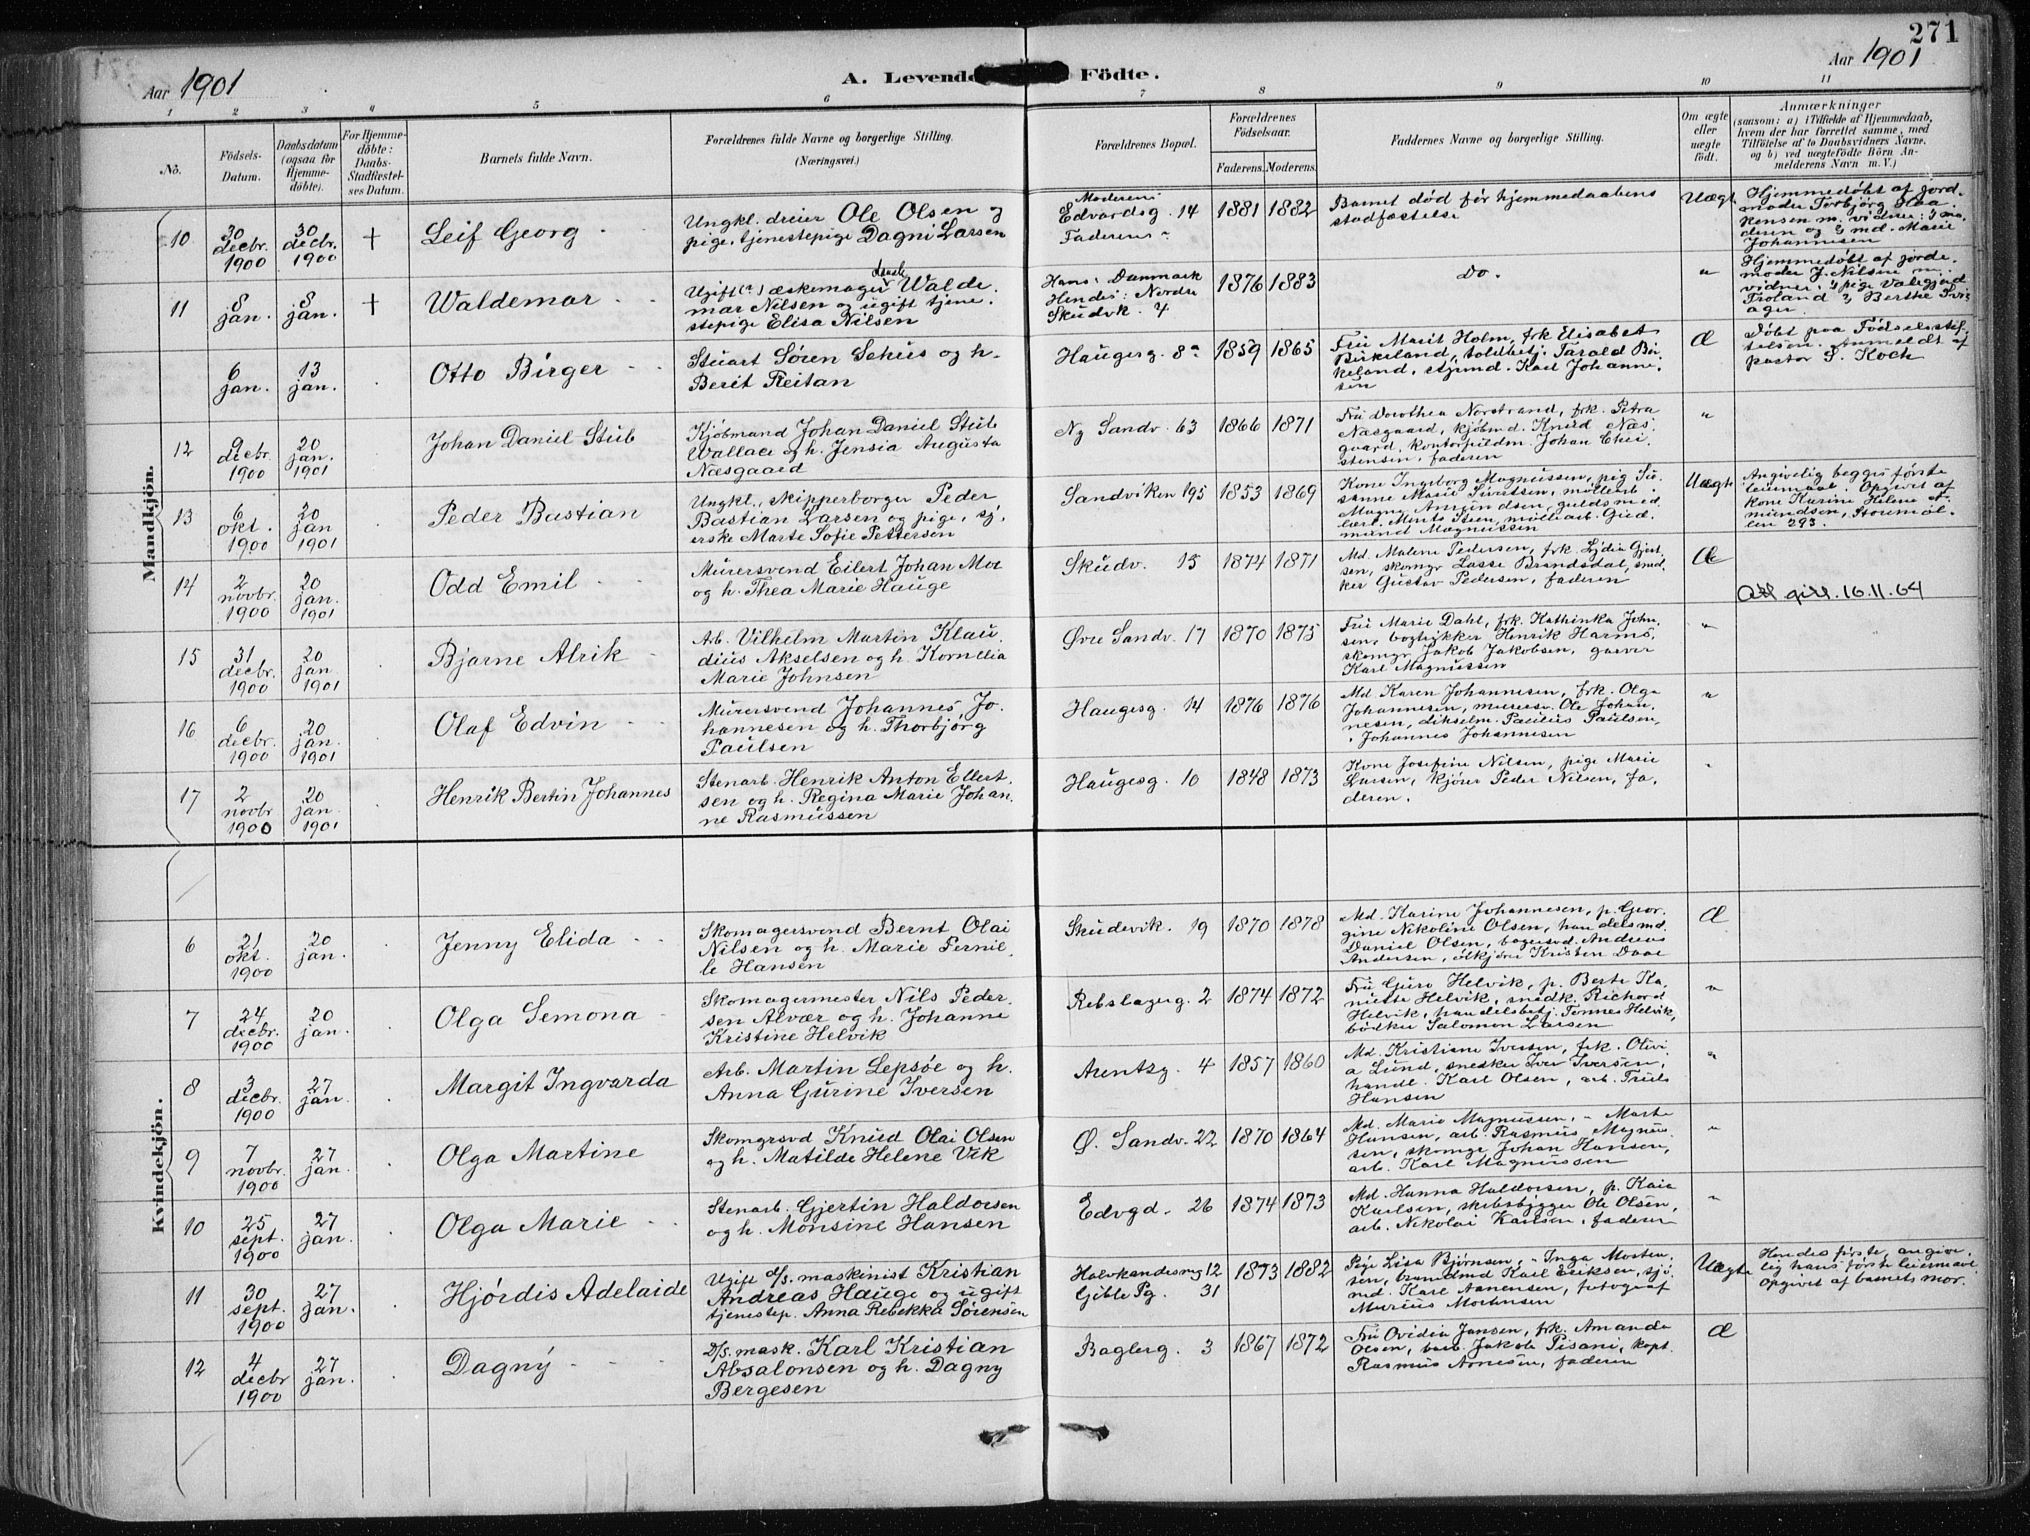 271
Aar 1901
A. Levende Födte.
Aar 1901
1 2 3 4 5 6 7 8 9 10 11
No.
Födsels-Datum.
Daabsdatum (ogsaa for Hjemmedöbte).
For Hjemmedöbte: Daabs-Stadfæstelses Datum.
Barnets fulde Navn.
Forældrenes fulde Navne og borgerlige Stilling.
(Næringsvei.)
Forældrenes Bopæl.
Forældrenes Födselsaar.
Faderens. Moderens.
Faddernes Navne og borgerlige Stilling.
Om ægte eller uægte födt.
Anmærkninger
(saasom: a) i Tilfælde af Hjemmedaab,
hvem der har forrettet samme, med
Tilföielse af to Daabsvidners Navne,
og b) ved uægtefödte Börn Anmelderens Navn m. V.)
Mandkjön.
10 30 decbr. 1900 30 decbr. 1900 † Leif Georg
Ungkl. dreier Ole Olsen og
pige, tjenestepige Dagni Larsen
Moderens:
Edvardsg. 14
Faderens "
1881 1882
Barnet död för hjemmedaabens
stadfæstelse
Uægte
Hjemmedöbt af jord.
moder Torbjörg Haa
kensen m. vidner: 1/ mo
deren og 2/ md. Marie
Johannesen
11 8 jan. 8 jan. † Waldemar
Ugift(?) æskemager dansk Walde
mar Nilsen og ugift tjene.
stepige Elisa Nilsen
Hans: Danmark
Hendes: Nordre
Skudvk. 4
1876 1883
Do.
"
Hjemmedöbt af jorde.
moder J. Nilsen m.
vidner: 1/ pige Valegjerd
Troland 2/ Berthe
6 jan. 13 jan. Otto Birger
Stuart Sören Schus og h.
Berit Reitan
Haugesg. 8a 1859 1865
Fru Marit Holm, frk Elisabet
Birkeland, toldbetj. Tarald Bir
keland, styrmd. Karl Johanne.
sen
Æ
Döbt paa Födselsstif
telsen. Anmeldt af
pastor S. Koch
12 9 decbr. 1900 20 jan. 1901 Johan Daniel Stub
Kjöbmand Johan Daniel Stub
Wallace og h. Jensia Augusta
Næsgaard
Ny Sandv. 63 1866 1871
Fru Dorothea Norstrand, frk. Petra
Næsgaard, kjöbmd. Knud Næs
gaard, kontorfuldm. Johan Chri
stensen, faderen
"
13 6 okt. 1900 20 jan 1901 Peder Bastian
Ungkl., skipperborger Peder
Bastian Larsen og pige, sy.
erske Marte Sofie Pettersen
Sandviken 195 1853 1869
Kone Ingeborg Magnussen, pig Su
sanne Marie Sivertsen, möllearb
Magne Amundsen, guldsmed
lærl. Monts Steen, möllearb. Gud.
mund Magnussen
Uægte
Angivelig begges förste
leiermaal. Opgivet af
kone Karine Helene A
mundsen, Storemöl
len 293.
14 2 novbr. 1900 20 jan. 1901 Odd Emil
Murersvend Eilert Johan Moe
og h. Thea Marie Hauge
Skudv. 15 1874 1871
Md. Malene Pedersen, frk. Lydia Gjert
sen, skomgr Lasse Brandsdal, snd.
ker Gustav Pedersen, faderen
Æ
Att gitt. 16.11.64
15 31 decbr. 1900 20 jan. 1901 Bjarne Alrik
Arb. Vilhelm Martin Klau
dius Akselsen og h. Kornelia
Marie Johnsen
Övre Sandv. 17 1870 1875
Fru Marie Dahl, frk. Kathinka John
sen, bogtrykker Henrik Harms,
skomgr Jakob Jakobsen, garver
Karl Magnussen
"
16 6 decbr. 1900 20 jan. 1901 Olaf Edvin
Murersvend Johannes Jo
hannesen og h. Thorbjörg
Paulsen
Haugesg. 14 1876 1876
Md. Karen Johannesen, frk. Olga
Johannesen, murersv. Ole Johan
nesen, dikselm. Paulus Paulsen,
" Johannes Johannesen
"
17 2 novbr 1900 20 jan. 1901 Henrik Bertin Johannes
Stenarb. Henrik Anton Ellert.
sen og h. Regina Marie Johan.
ne Rasmussen
Haugesg. 10 1848 1873
Kone Josefine Nilsen, pige Marie
Larsen, kjörer Peder Nilsen, fa.
deren.
"
Kvindekjön.
6 21 okt. 1900 20 jan. Jenny Elida
Skomagersvend Bernt Olai
Nilsen og h. Marie Pernil
le Hansen
Skudevik. 19 1870 1878
Md. Karine Johannesen, p. Geor.
gine Nikoline Olsen, handelsmd.
Daniel Olsen, bagersvd. Andreas
Andersen, ölkjörer Kristen Daae
Æ
7 24 decbr. 1900 20 jan. Olga Semona
Skomagermester Nils Peder.
sen Alvær og h. Johanne
Kristine Helvik
Rebslagerg. 2 1874 1872
Fru Guro Helvik, p. Berte Ka
nielse Helvik, snedk. Richard
Helvik, handelsbetj. Tönnes Helvik,
bödker Salomon Larsen
"
8 3 decbr. 1900 27 jan. Margit Ingvarda
Arb. Martin Lepsöe og h.
Anna Gurine Iversen
Arentzg. 4 1857 1860
Md. Kristiane Iversen, frk. Olivi
a Lund, snedker Iver Iversen,
handl. Karl Olsen, arb. Truls
Hansen
"
9 7 novbr. 1900 27 jan. Olga Martine
Skomgrsvd Knud Olai Olsen
og h. Matilde Helene Vik
Ö. Sandv. 22 1870 1864
Md. Marie Magnussen, " Marte
Hansen, arb. Rasmus Magnus
sen, skomgr Johan Hansen,
arb. Karl Magnussen
"
10 25 sept. 1900 27 jan. Olga Marie
Stenarb. Gjertin Haldorsen
og h. Monsine Hansen
Edvgd. 26 1874 1873
Md. Hanna Haldorsen, p. Kaia
Karlsen, skibsbygger Ole Olsen,
arb. Nikolai Karlsen, faderen
"
11 30 sept. 1900 27 jan. Hjördis Adelaide
Ugift d/s. maskinist Kristian
Andreas Hauge og ugift
tjenestep. Anna Rebekka Sörensen
Halvkandesmg 12
Gible Pg. 31
1873 1882
Pige Lisa Björnsen, " Inga Morten
sen, brandmd Karl Eriksen, sjö
md. Karl Aanensen, fotograf
Marius Mortensen
Uægte
Hendes förste, angive.
lig hans förste leiermaal
opgivet af barnets mor.
12 4 decbr 1900 27 jan. Dagny
D/s. mask. Karl Kristian
Absalonsen og h. Dagny
Bergesen
Baglerg. 3 1867 1872
Fru Ovidia Jansen, frk. Amanda
Olsen, barb. Jakob Pisani, kapt.
Rasmus Arnesen, faderen
Æ